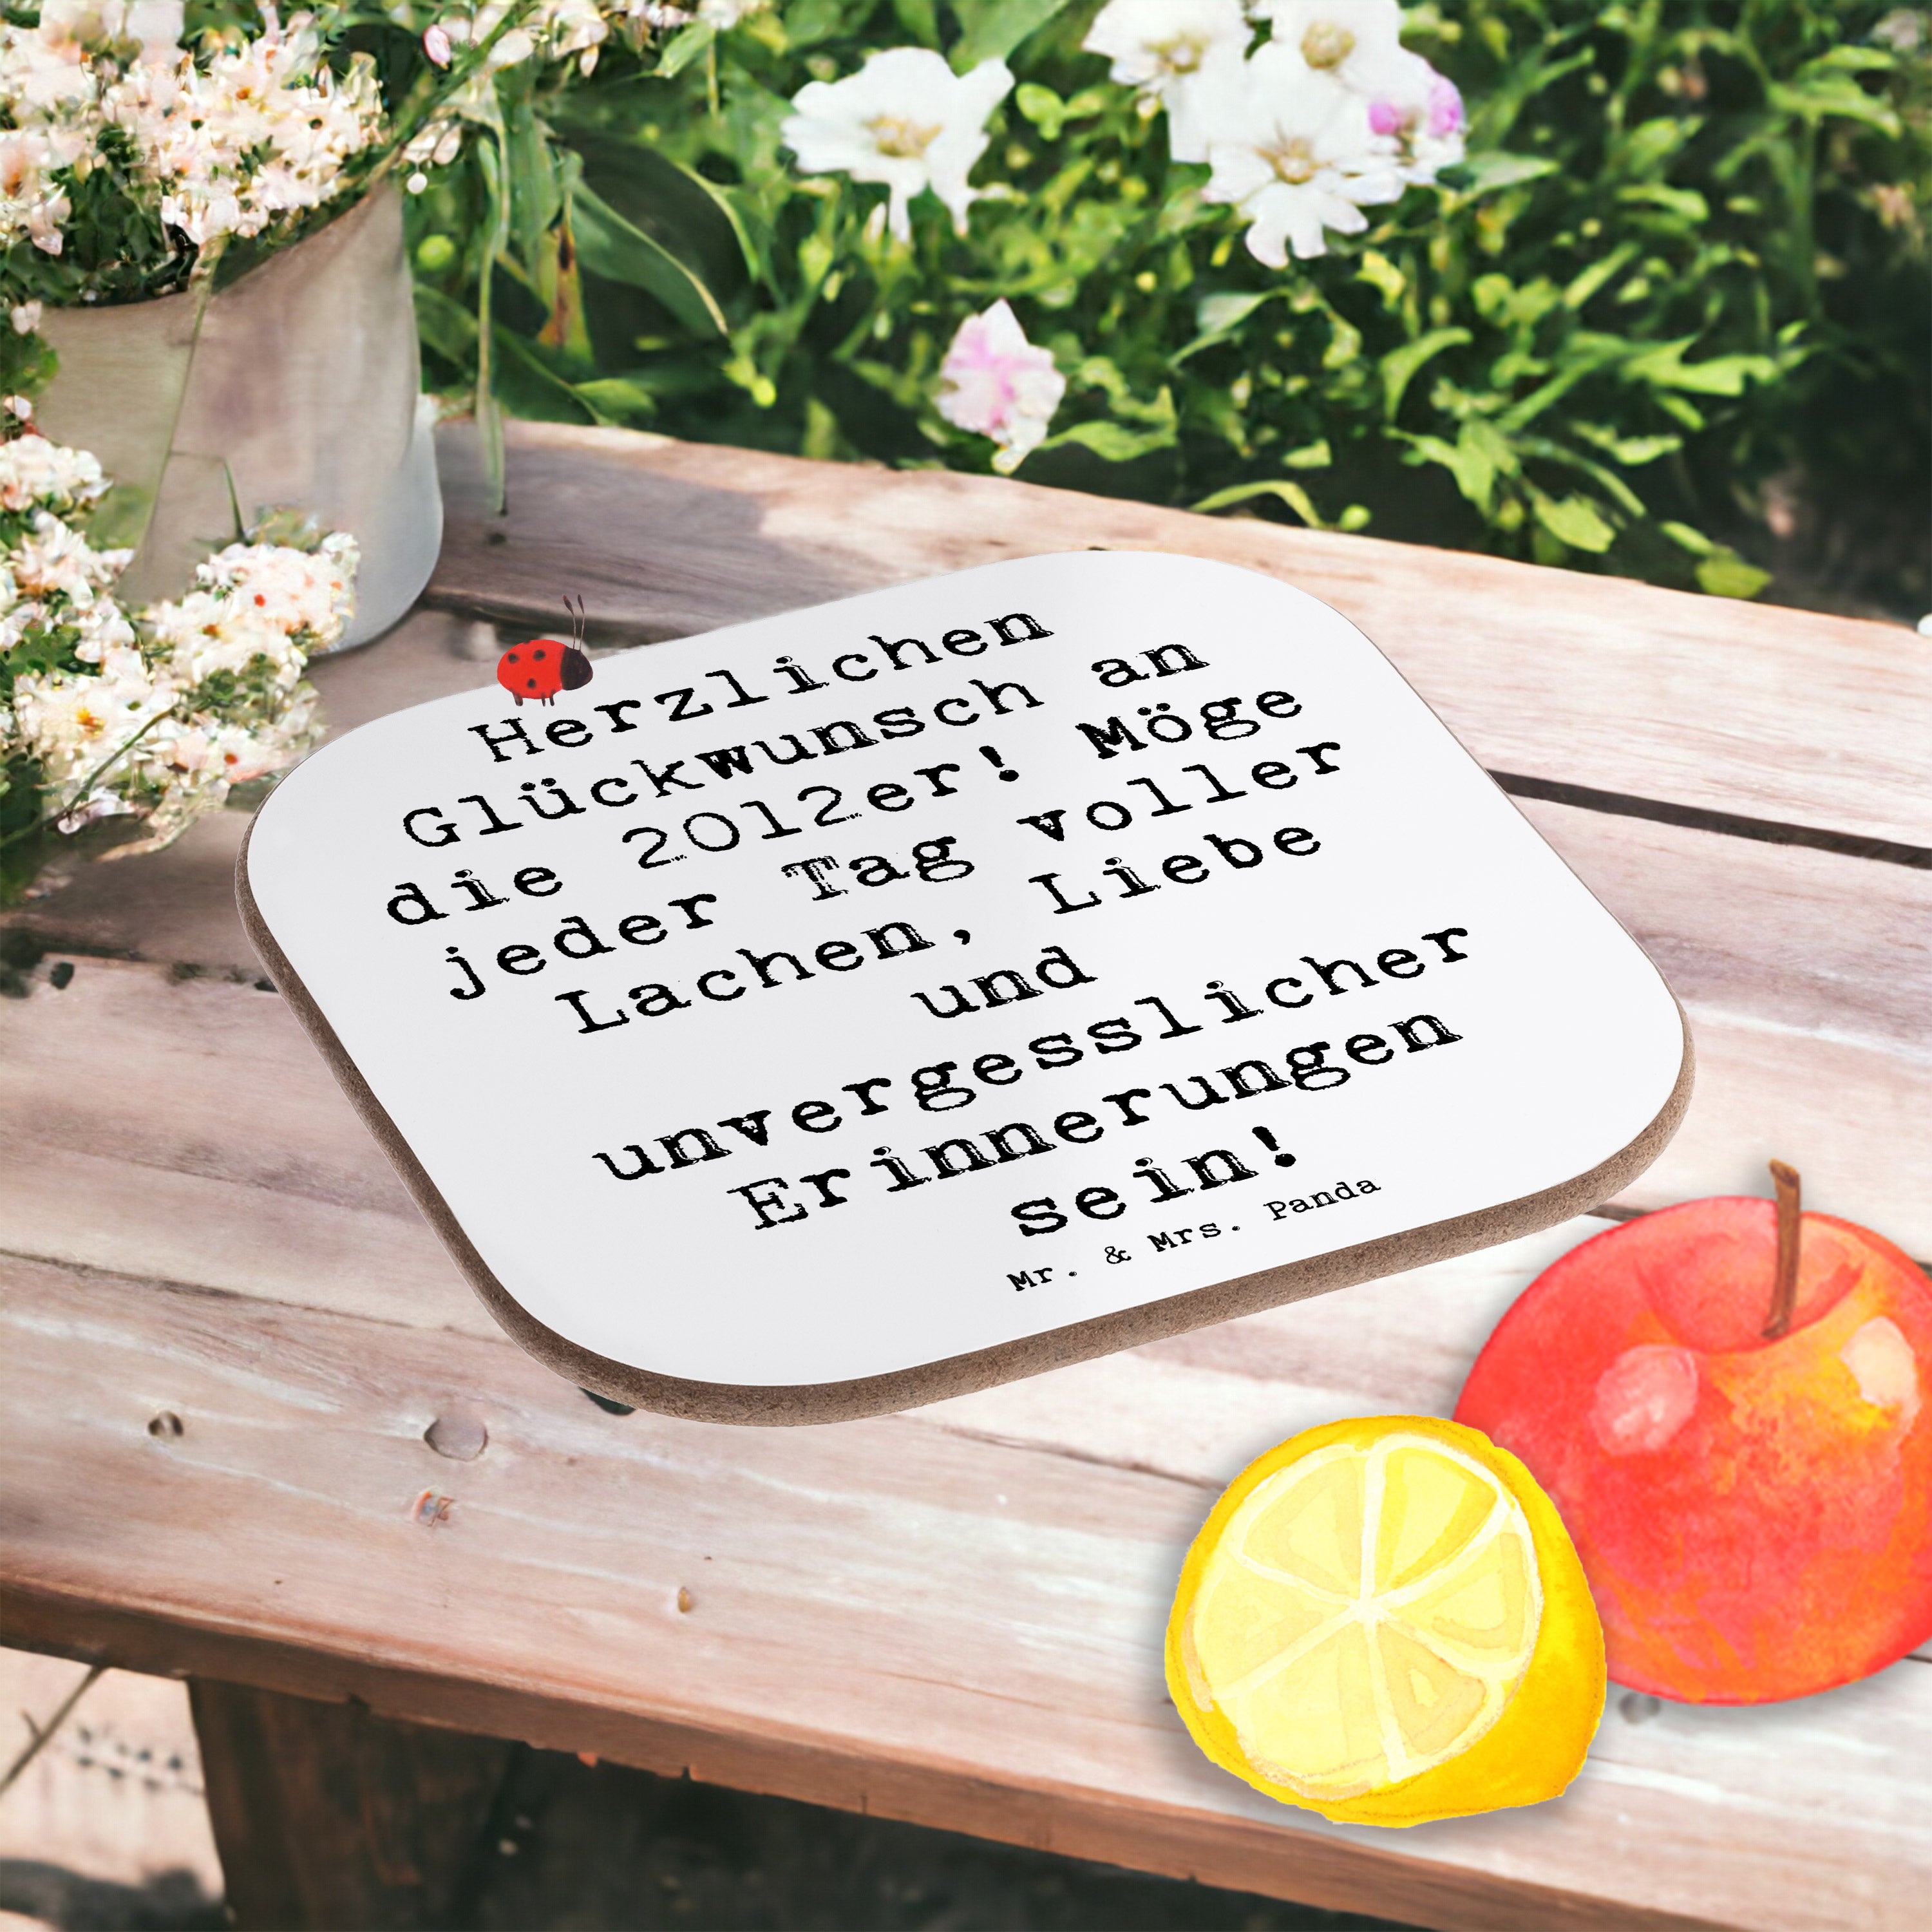 Herzlichen
Glückwunsch an
die 2012er! Möge
jeder Tag voller
Lachen, Liebe
und
unvergesslicher
Erinnerungen
sein!
Mr. & Mrs. Panda